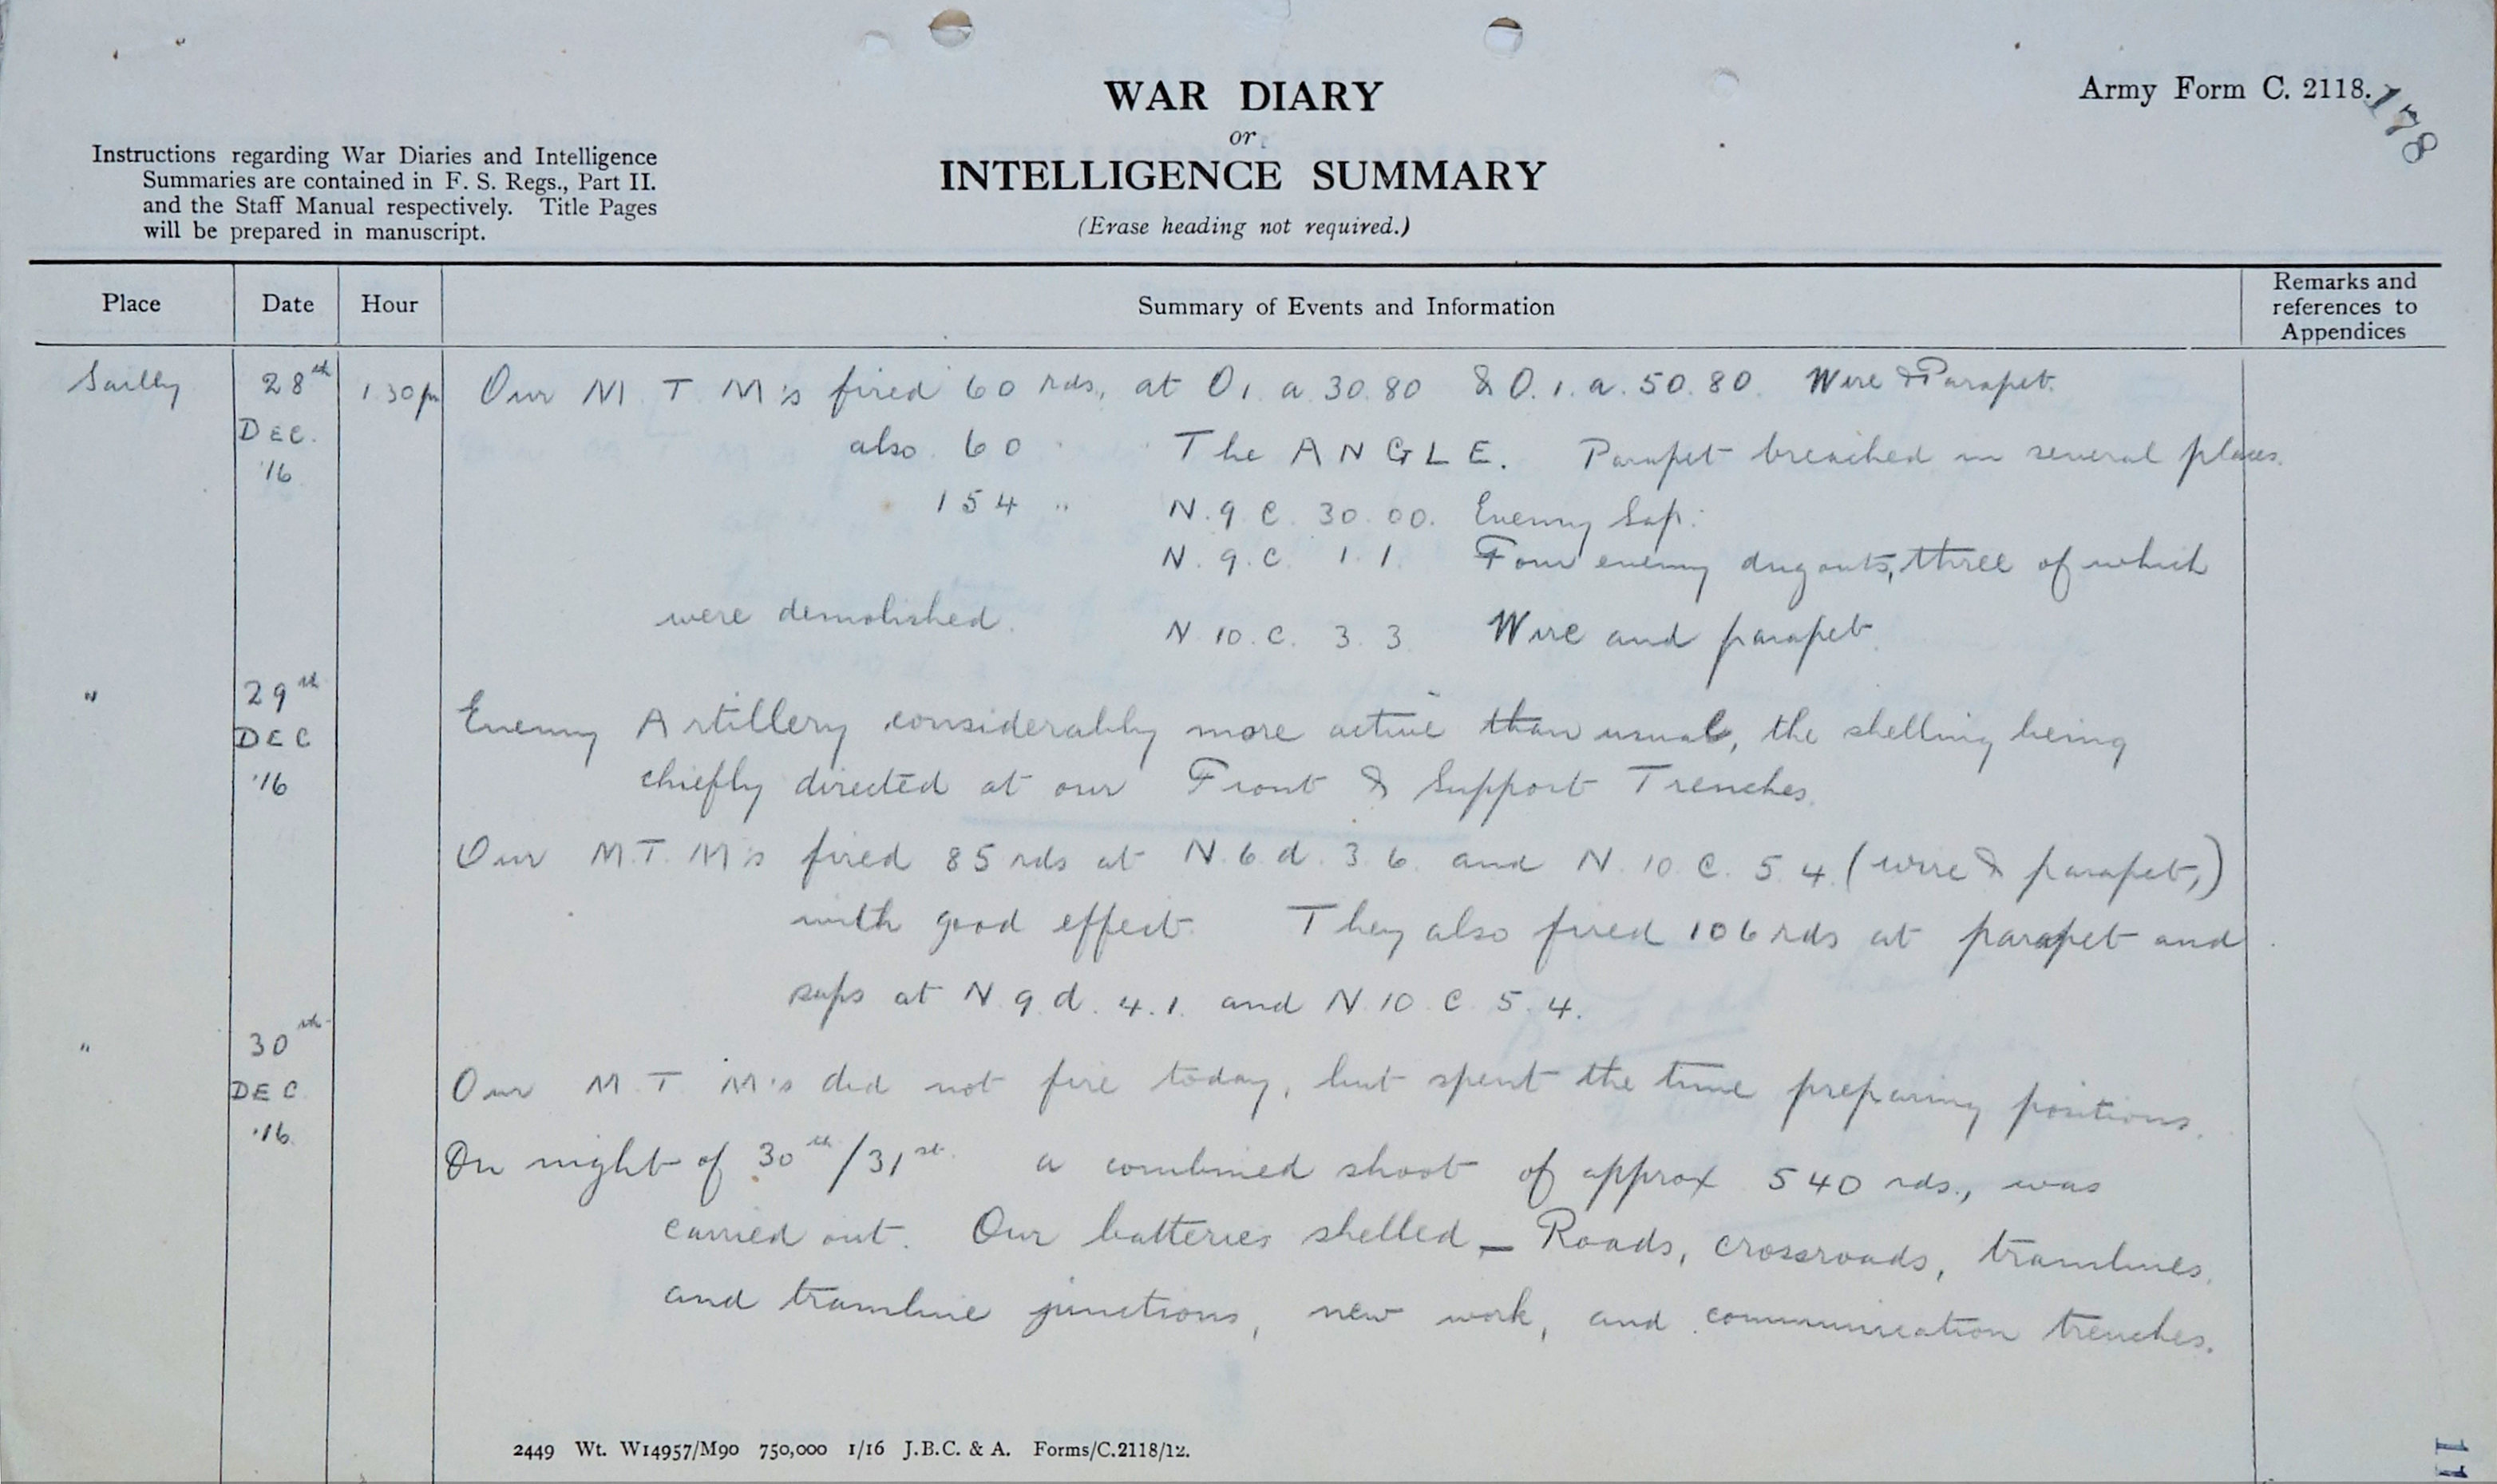 WAR DIARY
or
INTELLIGENCE SUMMARY
(Erase heading not required.)
Army Form C. 2118.
178
Instructions regarding War Diaries and Intelligence
Summaries are contained in F. S. Regs., Part II.
and the Staff Manual respectively. Title Pages
will be prepared in manuscript.
Place Date Hour Summary of Events and Information Remarks and references to Appendices
Sailly 28th DEC. '16 1.30pm Our M.T.M's fired 60 rds, at O1.a.30.80 & O.1.a.50.80. Wire & Parapet.
also 60 " " The ANGLE. Parapet breached in several places.
154 " N.9.C.30.00. Enemy Sap.
N.9.C. 1.1. Four enemy dugouts, three of which
were demolished. N.10.C. 3.3 Wire and parapet.
" 29th DEC '16 Enemy Artillery considerably more active than usual, the shelling being
chiefly directed at our Front & Support Trenches.
Our M.T.M's fired 85 rds at N.6.d.3.6. and N.10.C.5.4. (wire & parapet,)
with good effect. They also fired 106 rds at parapet and
saps at N.9.d.4.1. and N.10.C.5.4.
" 30th DEC '16 Our M.T.M's did not fire today, but spent the time preparing positions.
On night of 30th/31st. a combined shoot of approx 540 rds., was
carried out. Our batteries shelled – Roads, crossroads, tramlines,
and tramline junctions, new work, and communication trenches.
2449 Wt. W14957/M90 750,000 1/16 J.B.C. & A. Forms/C.2118/12.
11